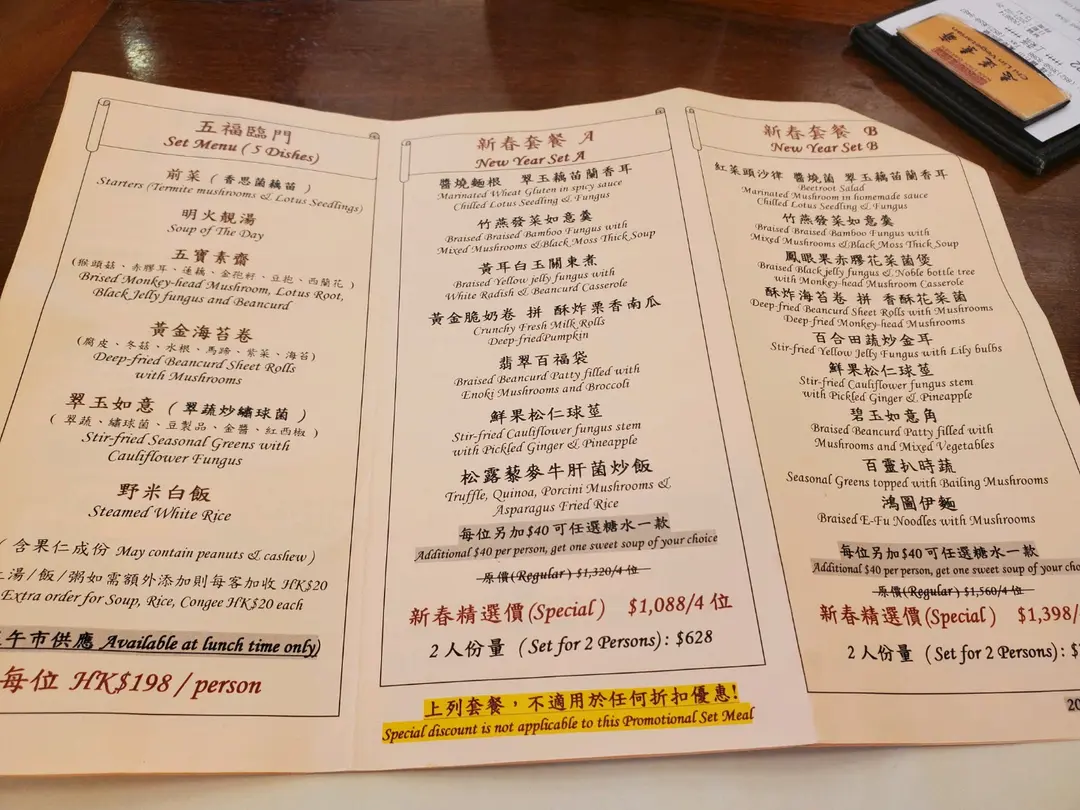 五福臨門
Set Menu ( 5 Dishes)
前菜 ( 香思菌藕苗 )
Starters (Termite mushrooms & Lotus Seedlings)
明火靚湯
Soup of The Day
五寶素齋
(猴頭菇、赤膠耳、蓮藕、金孢籽、豆抱、西蘭花 )
Brised Monkey-head Mushroom, Lotus Root,
Black Jelly fungus and Beancurd
黃金海苔卷
(腐皮、冬菇、水根、馬蹄、紫菜、海苔)
Deep-fried Beancurd Sheet Rolls
with Mushrooms
翠玉如意 ( 翠蔬炒繡球菌 )
( 翠蔬、繡球菌、豆製品、金醬、紅西椒 )
Stir-fried Seasonal Greens with
Cauliflower Fungus
野米白飯
Steamed White Rice
( 含果仁成份 May contain peanuts & cashew )
湯/飯/粥如需額外添加則每客加收 HK$20
Extra order for Soup, Rice, Congee HK$20 each
午市供應 Available at lunch time only)
每位 HK$198 / person
新春套餐 A
New Year Set A
醬燒麵根 翠玉藕苗蘭香耳
Marinated Wheat Gluten in spicy sauce
Chilled Lotus Seedling & Fungus
竹燕發菜如意羹
Braised Braised Bamboo Fungus with
Mixed Mushrooms &Black Moss Thick Soup
黃耳白玉關東煮
Braised Yellow jelly fungus with
White Radish & Beancurd Casserole
黃金脆奶卷 拼 酥炸栗香南瓜
Crunchy Fresh Milk Rolls
Deep-friedPumpkin
翡翠百福袋
Braised Beancurd Patty filled with
Enoki Mushrooms and Broccoli
鮮果松仁球莖
Stir-fried Cauliflower fungus stem
with Pickled Ginger & Pineapple
松露藜麥牛肝菌炒飯
Truffle, Quinoa, Porcini Mushrooms &
Asparagus Fried Rice
每位另加$40可任選糖水一款
Additional $40 per person, get one sweet soup of your choice
原價(Regular) $1,320/4 位
新春精選價(Special) $1,088/4 位
2 人份量 ( Set for 2 Persons): $628
上列套餐，不適用於任何折扣優惠!
Special discount is not applicable to this Promotional Set Meal
新春套餐 B
New Year Set B
紅菜頭沙律 醬燒菌 翠玉藕苗蘭香耳
Beetroot Salad
Marinated Mushroom in homemade sauce
Chilled Lotus Seedling & Fungus
竹燕發菜如意羹
Braised Braised Bamboo Fungus with
Mixed Mushrooms &Black Moss Thick Soup
鳳眼果赤膠花菜菌煲
Braised Black jelly fungus & Noble bottle tree
with Monkey-head Mushroom Casserole
酥炸海苔卷 拼 香酥花菜菌
Deep-fried Beancurd Sheet Rolls with Mushrooms
Deep-fried Monkey-head Mushrooms
百合田蔬炒金耳
Stir-fried Yellow Jelly Fungus with Lily bulbs
鮮果松仁球莖
Stir-fried Cauliflower fungus stem
with Pickled Ginger & Pineapple
碧玉如意角
Braised Beancurd Patty filled with
Mushrooms and Mixed Vegetables
百靈扒時蔬
Seasonal Greens topped with Bailing Mushrooms
鴻圖伊麵
Braised E-Fu Noodles with Mushrooms
每位另加$40可任選糖水一款
Additional $40 per person, get one sweet soup of your
原價(Regular) $1,560/4 位
新春精選價(Special) $1,398/
2 人份量 ( Set for 2 Persons):
志蓮素齋
Chi Lin Vegetarian